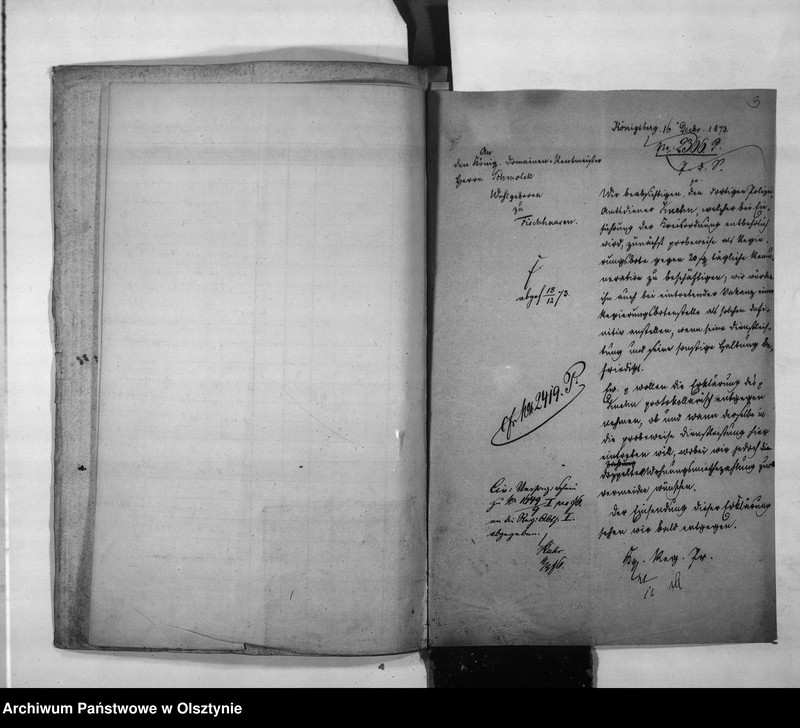 3
Königsberg, 16 Decbr. 1873.
An
den Königl. Domainen-Rentmeister
Herrn
Wohlgeboren
zu
Fischhausen.
Wir beabsichtigen, den dortigen Polizei
Amtsdiener welcher bei Ein-
führung der Kreisordnung entbehrlich
wird, zunächst probeweise als Regie-
rungsbote gegen 20 sg tägliche Remu-
neration zu beschäftigen; wir würden
ihn auch bei eintretender Vakanz einer
Regierungsbotenstelle als solchen defi-
nitiv anstellen, wenn seine Dienstleis-
tung und seine sonstige Haltung be-
friedigt.
Ew. p wollen die Erklärung des p
protokollarisch entgegen
nehmen, ob und wann derselbe in
die probeweise Dienstleistung hier
eintreten will, wobei wir jedoch die
doppelte Wohnungsmiethszahlung zu
vermeiden wünschen.
Der Einsendung dieser Erklärung
sehen wir bald entgegen.
Kgl. Reg. Pr.
abges 18/12 73.
cfr No 2419. P.
an die Reg: Abth. I.
abgegeben.
Archiwum Państwowe w Olsztynie